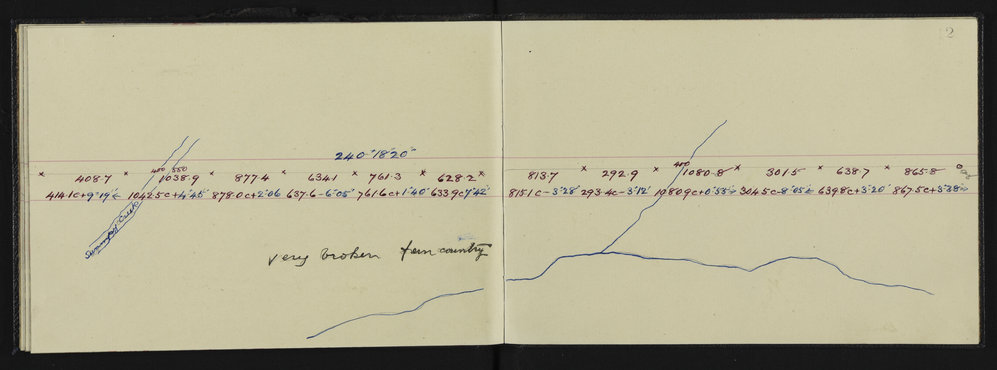 2
240°18'20"
400 550 400
408.7 1038.9 877.4 634.1 761.3 628.2 813.7 292.9 1080.8 301.5 638.7 865.8
414.1 C+9°19' 1042.5 C+4°45' 878.0 C+2°06 637.6-6°05' 761.6 C+1°40' 633.9 C 7°42' 815.1 C-3°28' 293.4 C-3°12' 1080.9 C+0°53' 304.5 C-8°05' 639.8 C+3°20' 867.5 C+3°38'
Swampy Creek
very broken fern country